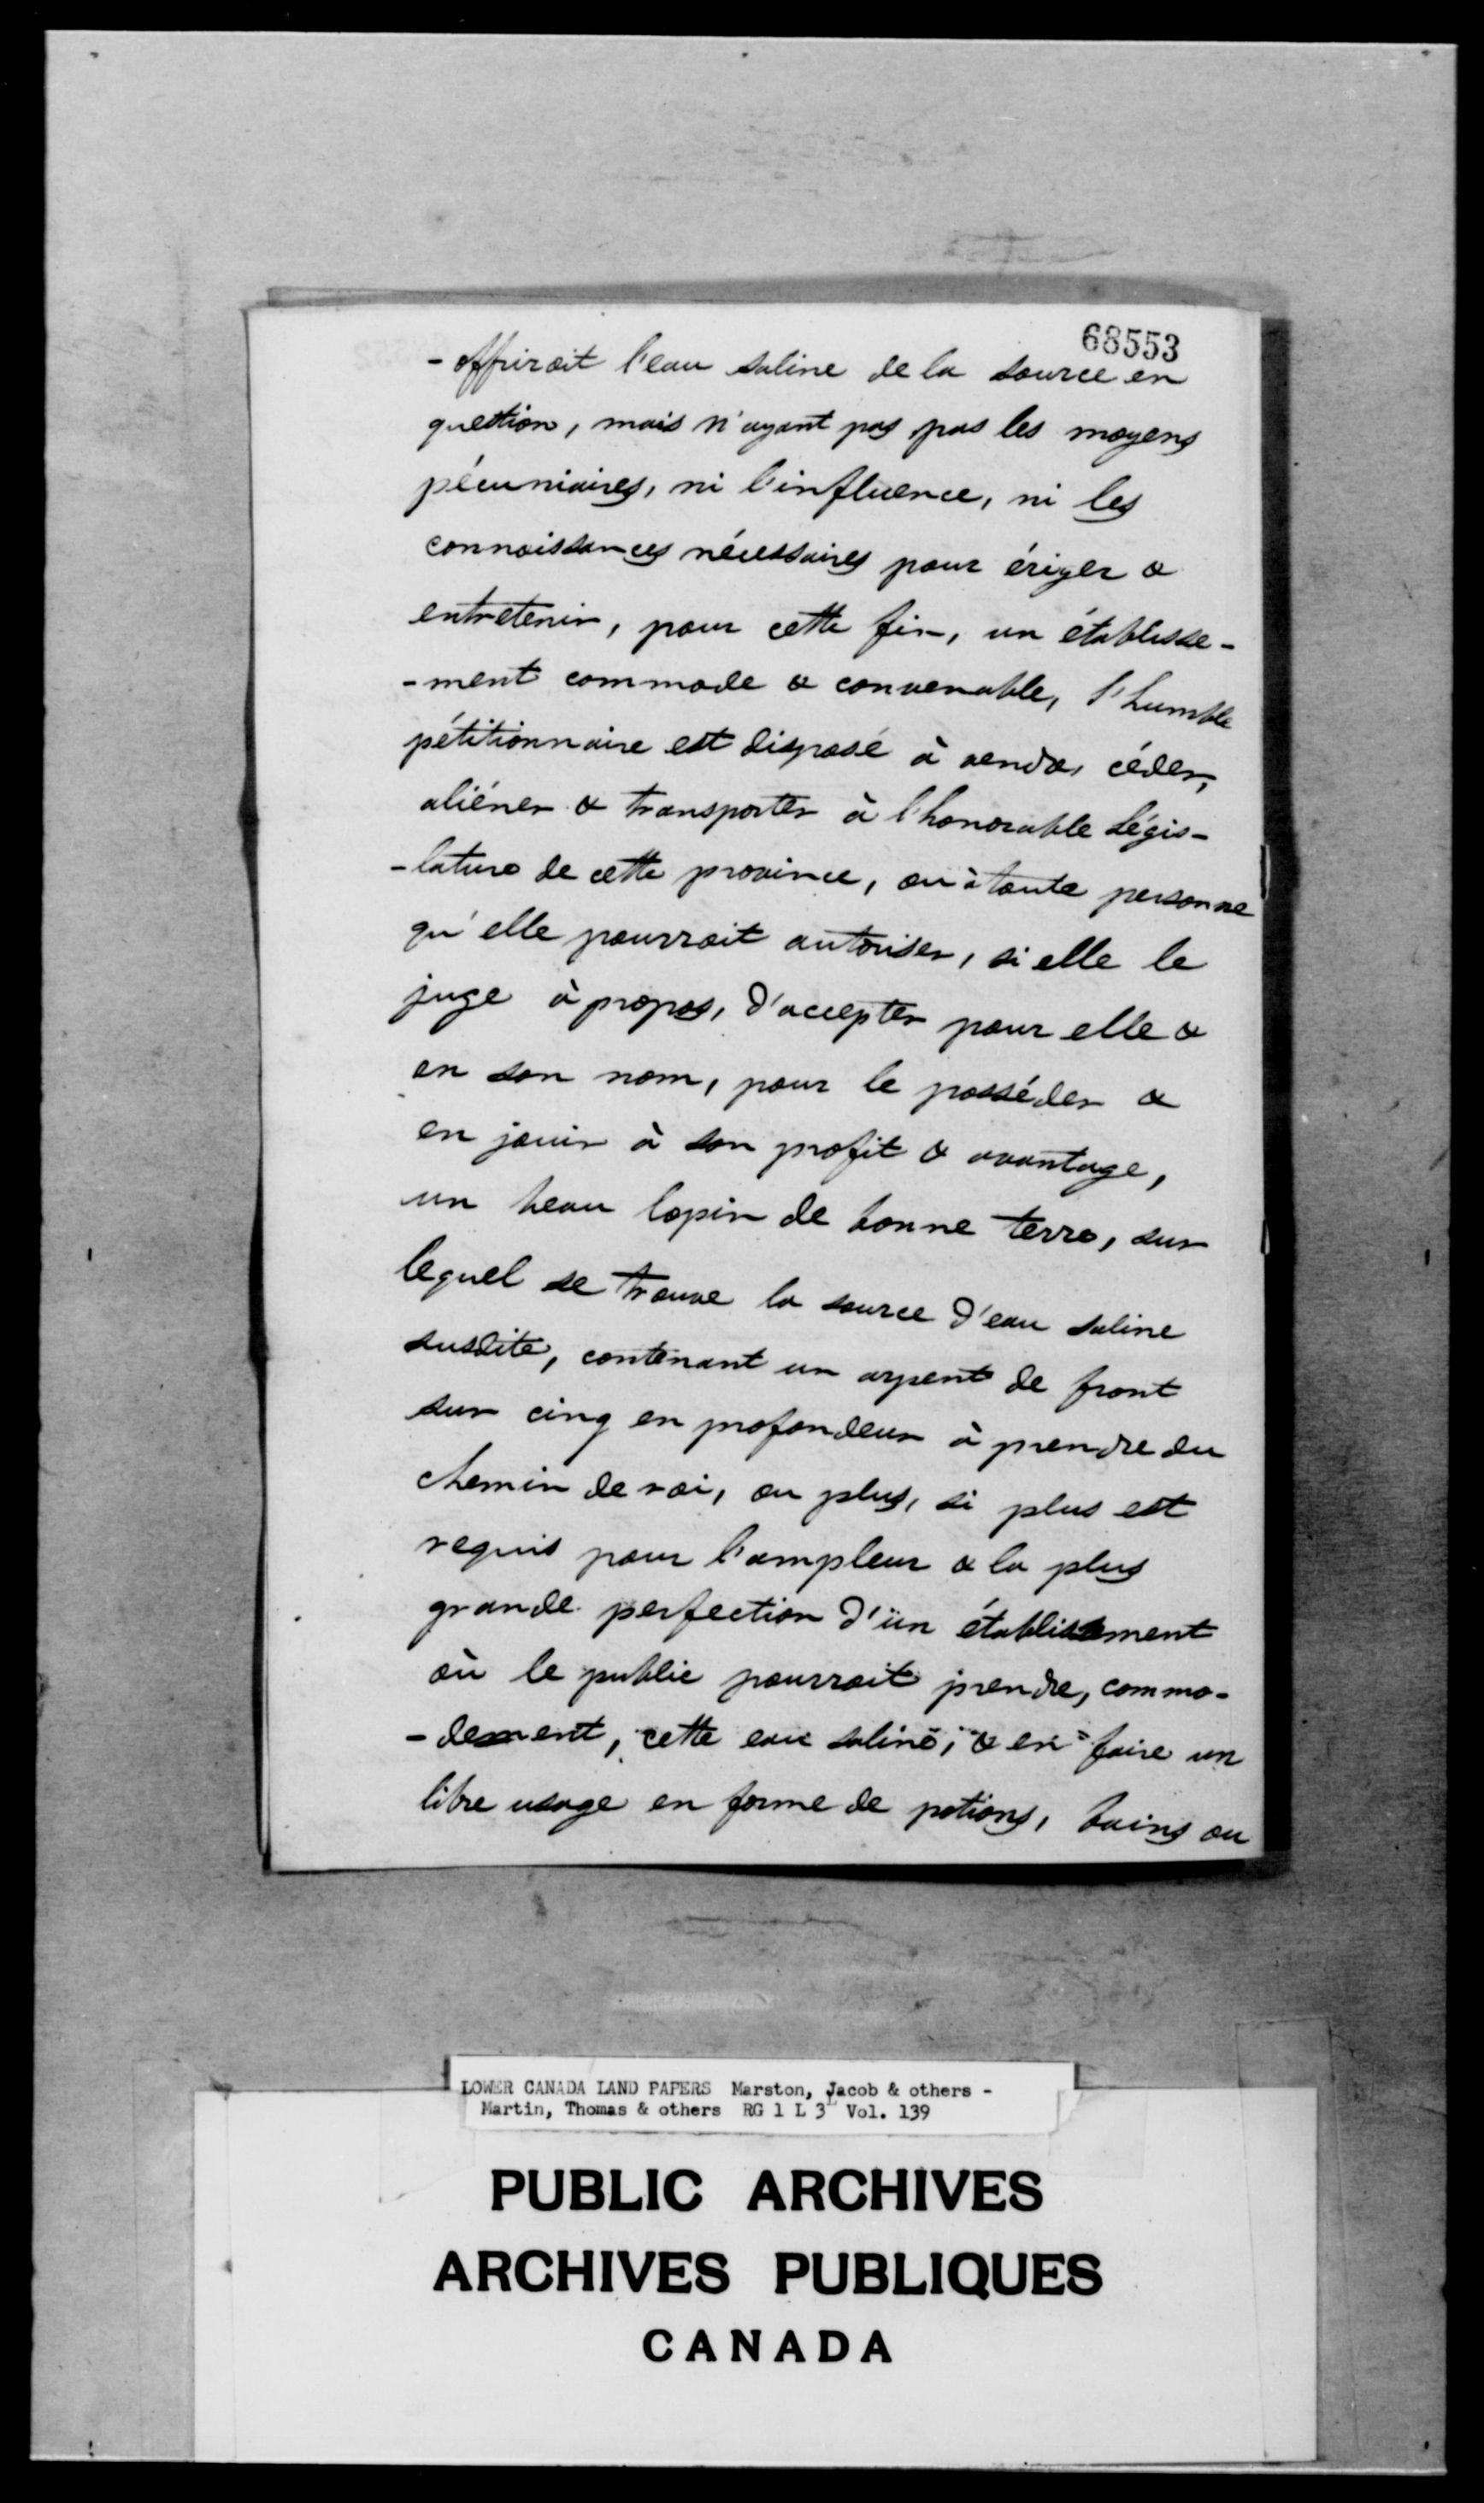 68553
- offriroit l'eau saline de la source en
question, mais n'ayant pas pas les moyens
pécuniaires, ni l'influence, ni les
connoissances nécessaires pour ériger &
entretenir, pour cette fin, un établisse-
-ment commode & convenable, l'humble
pétitionnaire est disposé à vendre, céder,
aliéner & transporter à l'honorable Légis-
-lature de cette province, ou à toute personne
qu'elle pourroit autoriser, si elle le
juge à propos, d'accepter pour elle &
en son nom, pour le posséder &
en jouir à son profit & avantage,
un beau lopin de bonne terre, sur
lequel se trouve la source d'eau saline
susdite, contenant un arpent de front
sur cinq en profondeur à prendre du
chemin de roi, ou plus, si plus est
requis pour l'ampleur & la plus
grande perfection d'un établissement
où le public pourroit prendre, commo-
-dement, cette eau saline, & en faire un
libre usage en forme de potions, bains ou
LOWER CANADA LAND PAPERS Marston, Jacob & others -
Martin, Thomas & others RG 1 L 3L Vol. 139
PUBLIC ARCHIVES
ARCHIVES PUBLIQUES
CANADA